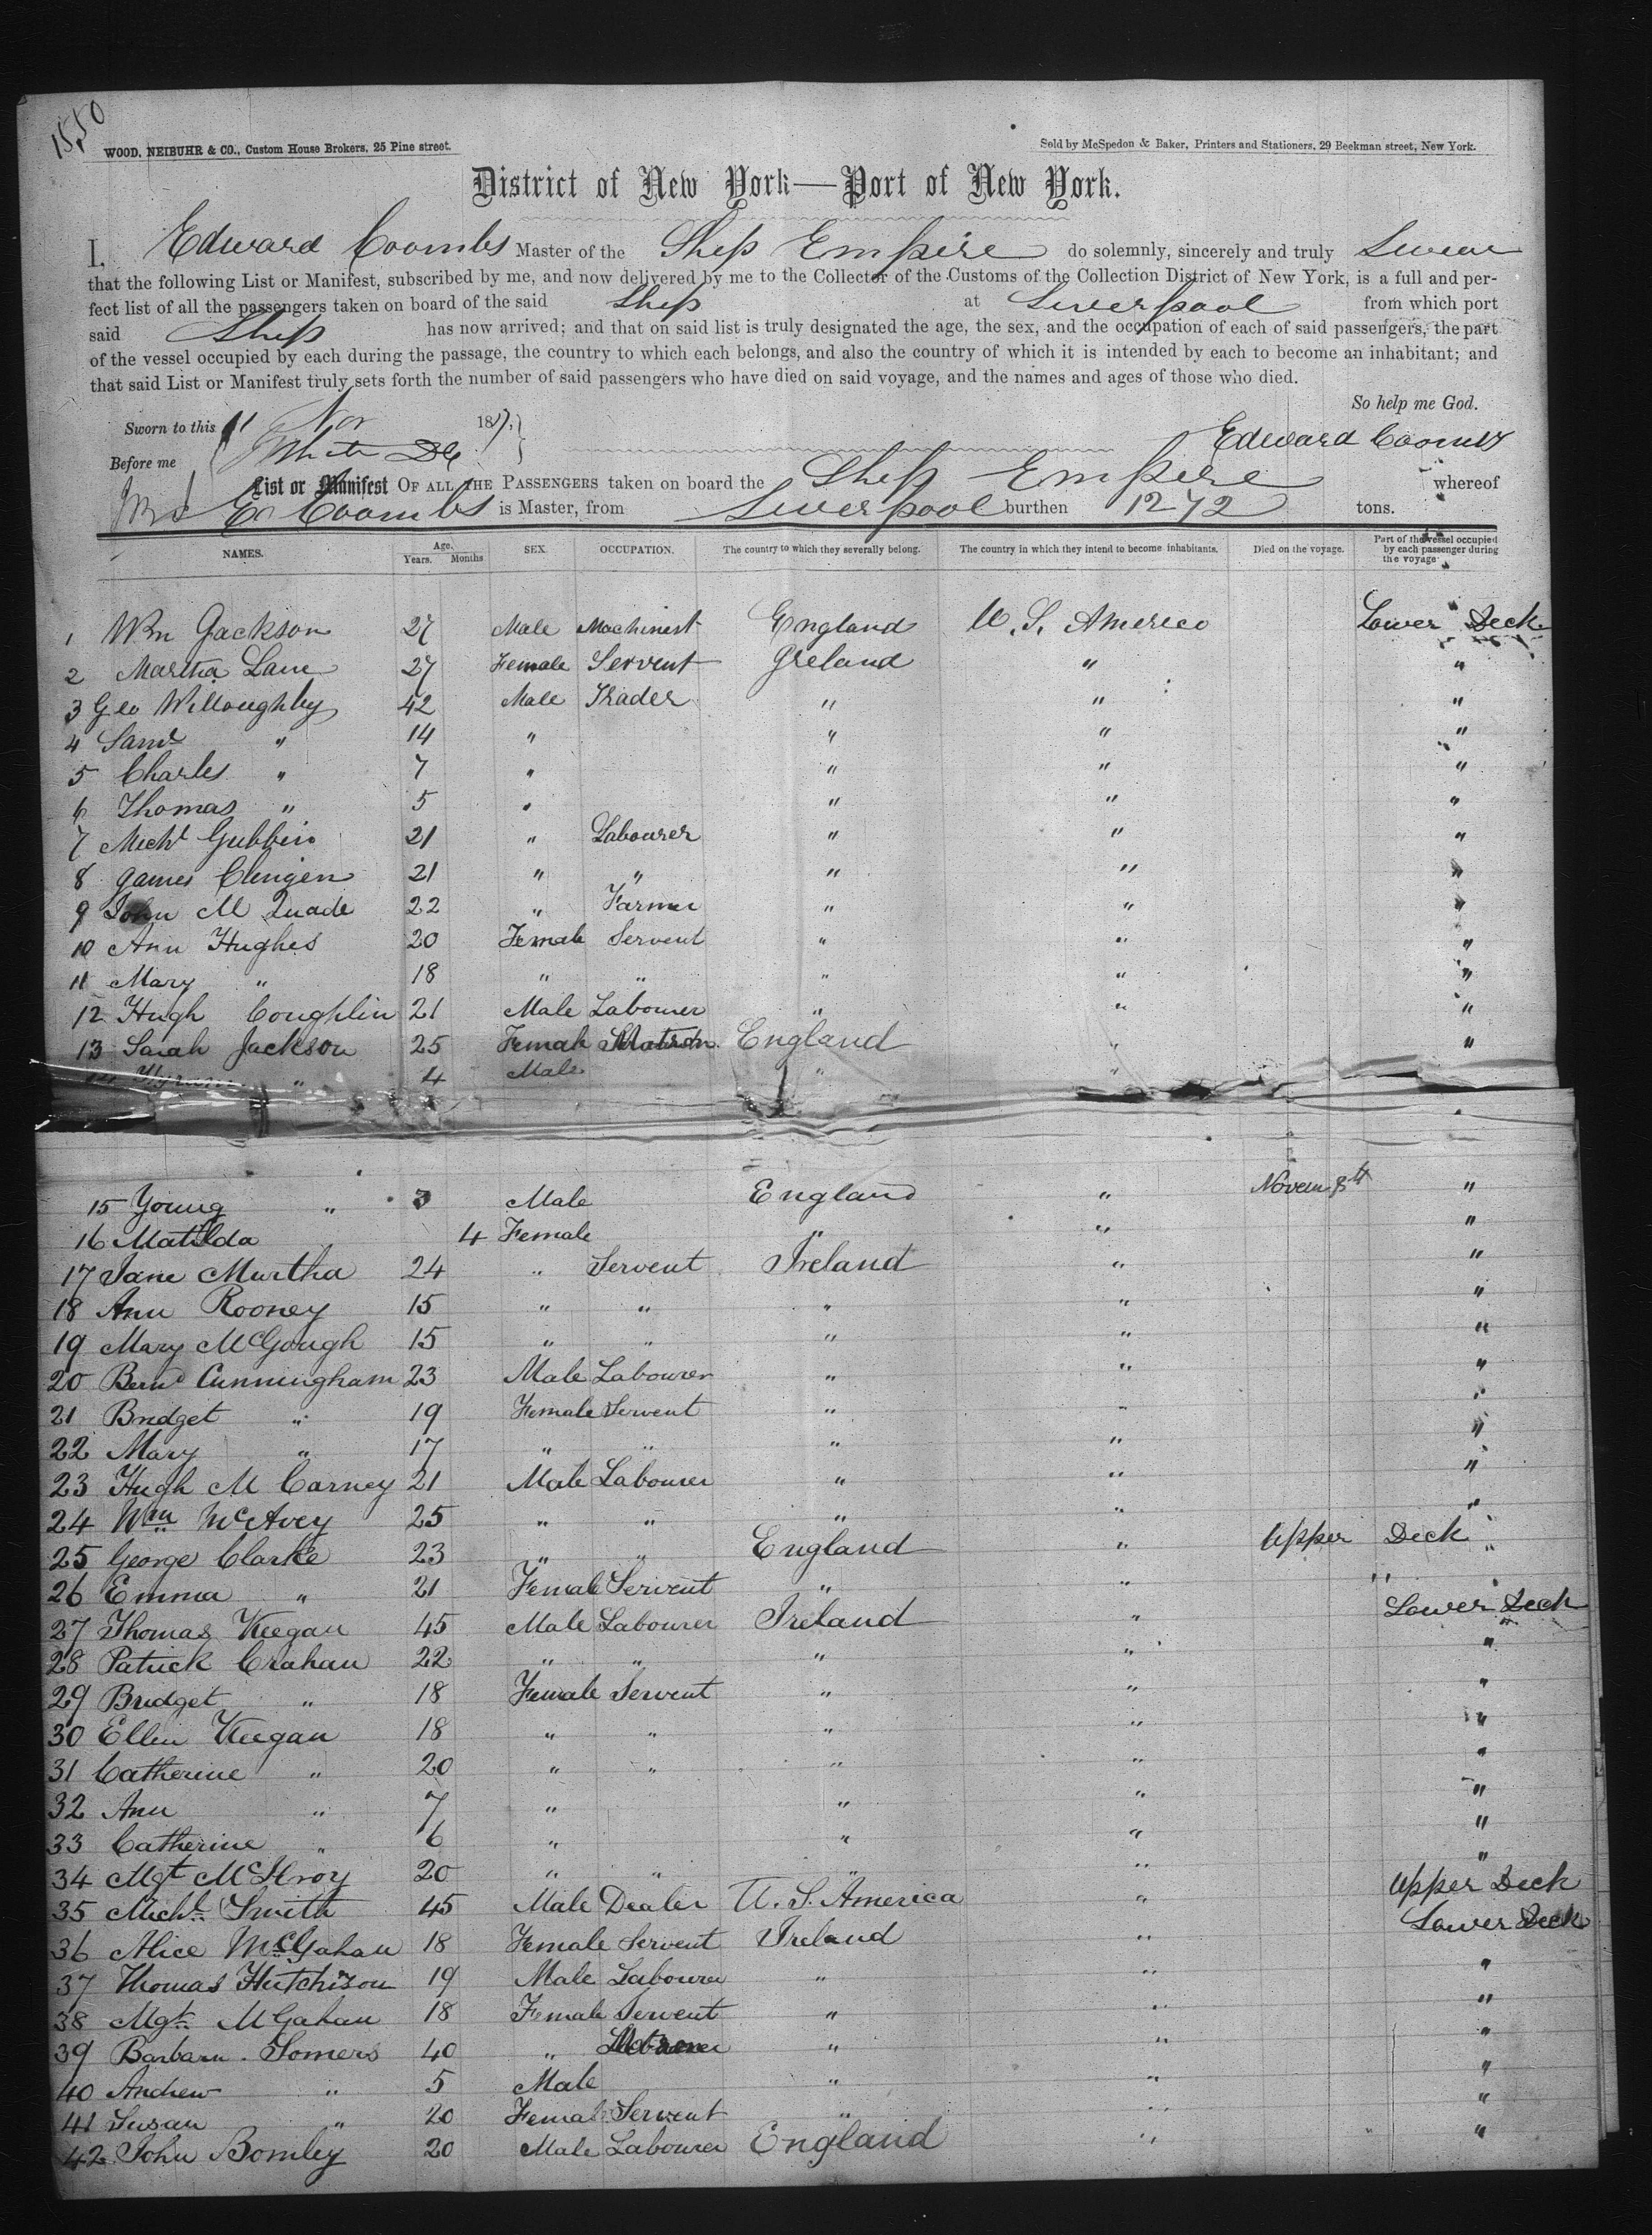 1550
WOOD, NEIBUHR & CO., Custom House Brokers, 25 Pine street.
Sold by McSpedon & Baker, Printers and Stationers, 29 Beekman street, New York.
District of New York—Port of New York.
I, Edward Coombs Master of the Ship Empire do solemnly, sincerely and truly Swear
that the following List or Manifest, subscribed by me, and now delivered by me to the Collector of the Customs of the Collection District of New York, is a full and per-
fect list of all the passengers taken on board of the said Ship at Liverpool from which port
said Ship has now arrived; and that on said list is truly designated the age, the sex, and the occupation of each of said passengers, the part
of the vessel occupied by each during the passage, the country to which each belongs, and also the country of which it is intended by each to become an inhabitant; and
that said List or Manifest truly sets forth the number of said passengers who have died on said voyage, and the names and ages of those who died.
So help me God.
Sworn to this 11 Nov 18
Edward Coombs
Before me
List or Manifest OF ALL THE PASSENGERS taken on board the Ship Empire whereof
E Coombs is Master, from Liverpool burthen 1272 tons.
NAMES. Age. Years. Months SEX. OCCUPATION. The country to which they severally belong. The country in which they intend to become inhabitants. Died on the voyage. Part of the vessel occupied by each passenger during the voyage
1 Wm Jackson 27 Male Machinest England U. S. America Lower Deck
2 Martha Lane 27 Female Servent Ireland " "
3 Geo Willoughby 42 Male Trader " " "
4 Saml " 14 " " " "
5 Charles " 7 " " " "
6 Thomas " 5 " " " "
7 Michl Gubbins 21 " Labourer " " "
8 James Clengen 21 " " " " "
9 John M Quade 22 " Farmer " " "
10 Ann Hughes 20 Female Servent " " "
11 Mary " 18 " " " " "
12 Hugh Coughlin 21 Male Labourer " " "
13 Sarah Jackson 25 Female Matron England " "
14 Hyram " 4 Male " "
15 Young " 3 Male England " Novem 8th "
16 Matilda 4 Female " " "
17 Jane Murtha 24 " Servent Ireland " "
18 Ann Rooney 15 " " " " "
19 Mary McGough 15 " " " " "
20 Bernd Cunningham 23 Male Labourer " " "
21 Bridget " 19 Female Servent " " "
22 Mary " 17 " " " " "
23 Hugh M Carney 21 Male Labourer " " "
24 Wm McAvey 25 " " " " "
25 George Clarke 23 " " England " Upper Deck "
26 Emma " 21 Female Servent " " "
27 Thomas Keegan 45 Male Labourer Ireland " Lower Deck
28 Patrick Crahan 22 " " " " "
29 Bridget " 18 Female Servent " " "
30 Ellen Keegan 18 " " " " "
31 Catherine " 20 " " " " "
32 Ann " 7 " " " "
33 Catherine " 6 " " " "
34 Mgt McIlroy 20 " " " " "
35 Michl Smith 45 Male Dealer U. S. America " Upper Deck
36 Alice McGahan 18 Female Servent Ireland " Lower Deck
37 Thomas Hutchison 19 Male Labourer " " "
38 Mgt M Gahan 18 Female Servent " " "
39 Barbara Somers 40 " " " "
40 Andrew " 5 Male " " "
41 Susan " 20 Female Servent " " "
42 John Bomley 20 Male Labourer England " "